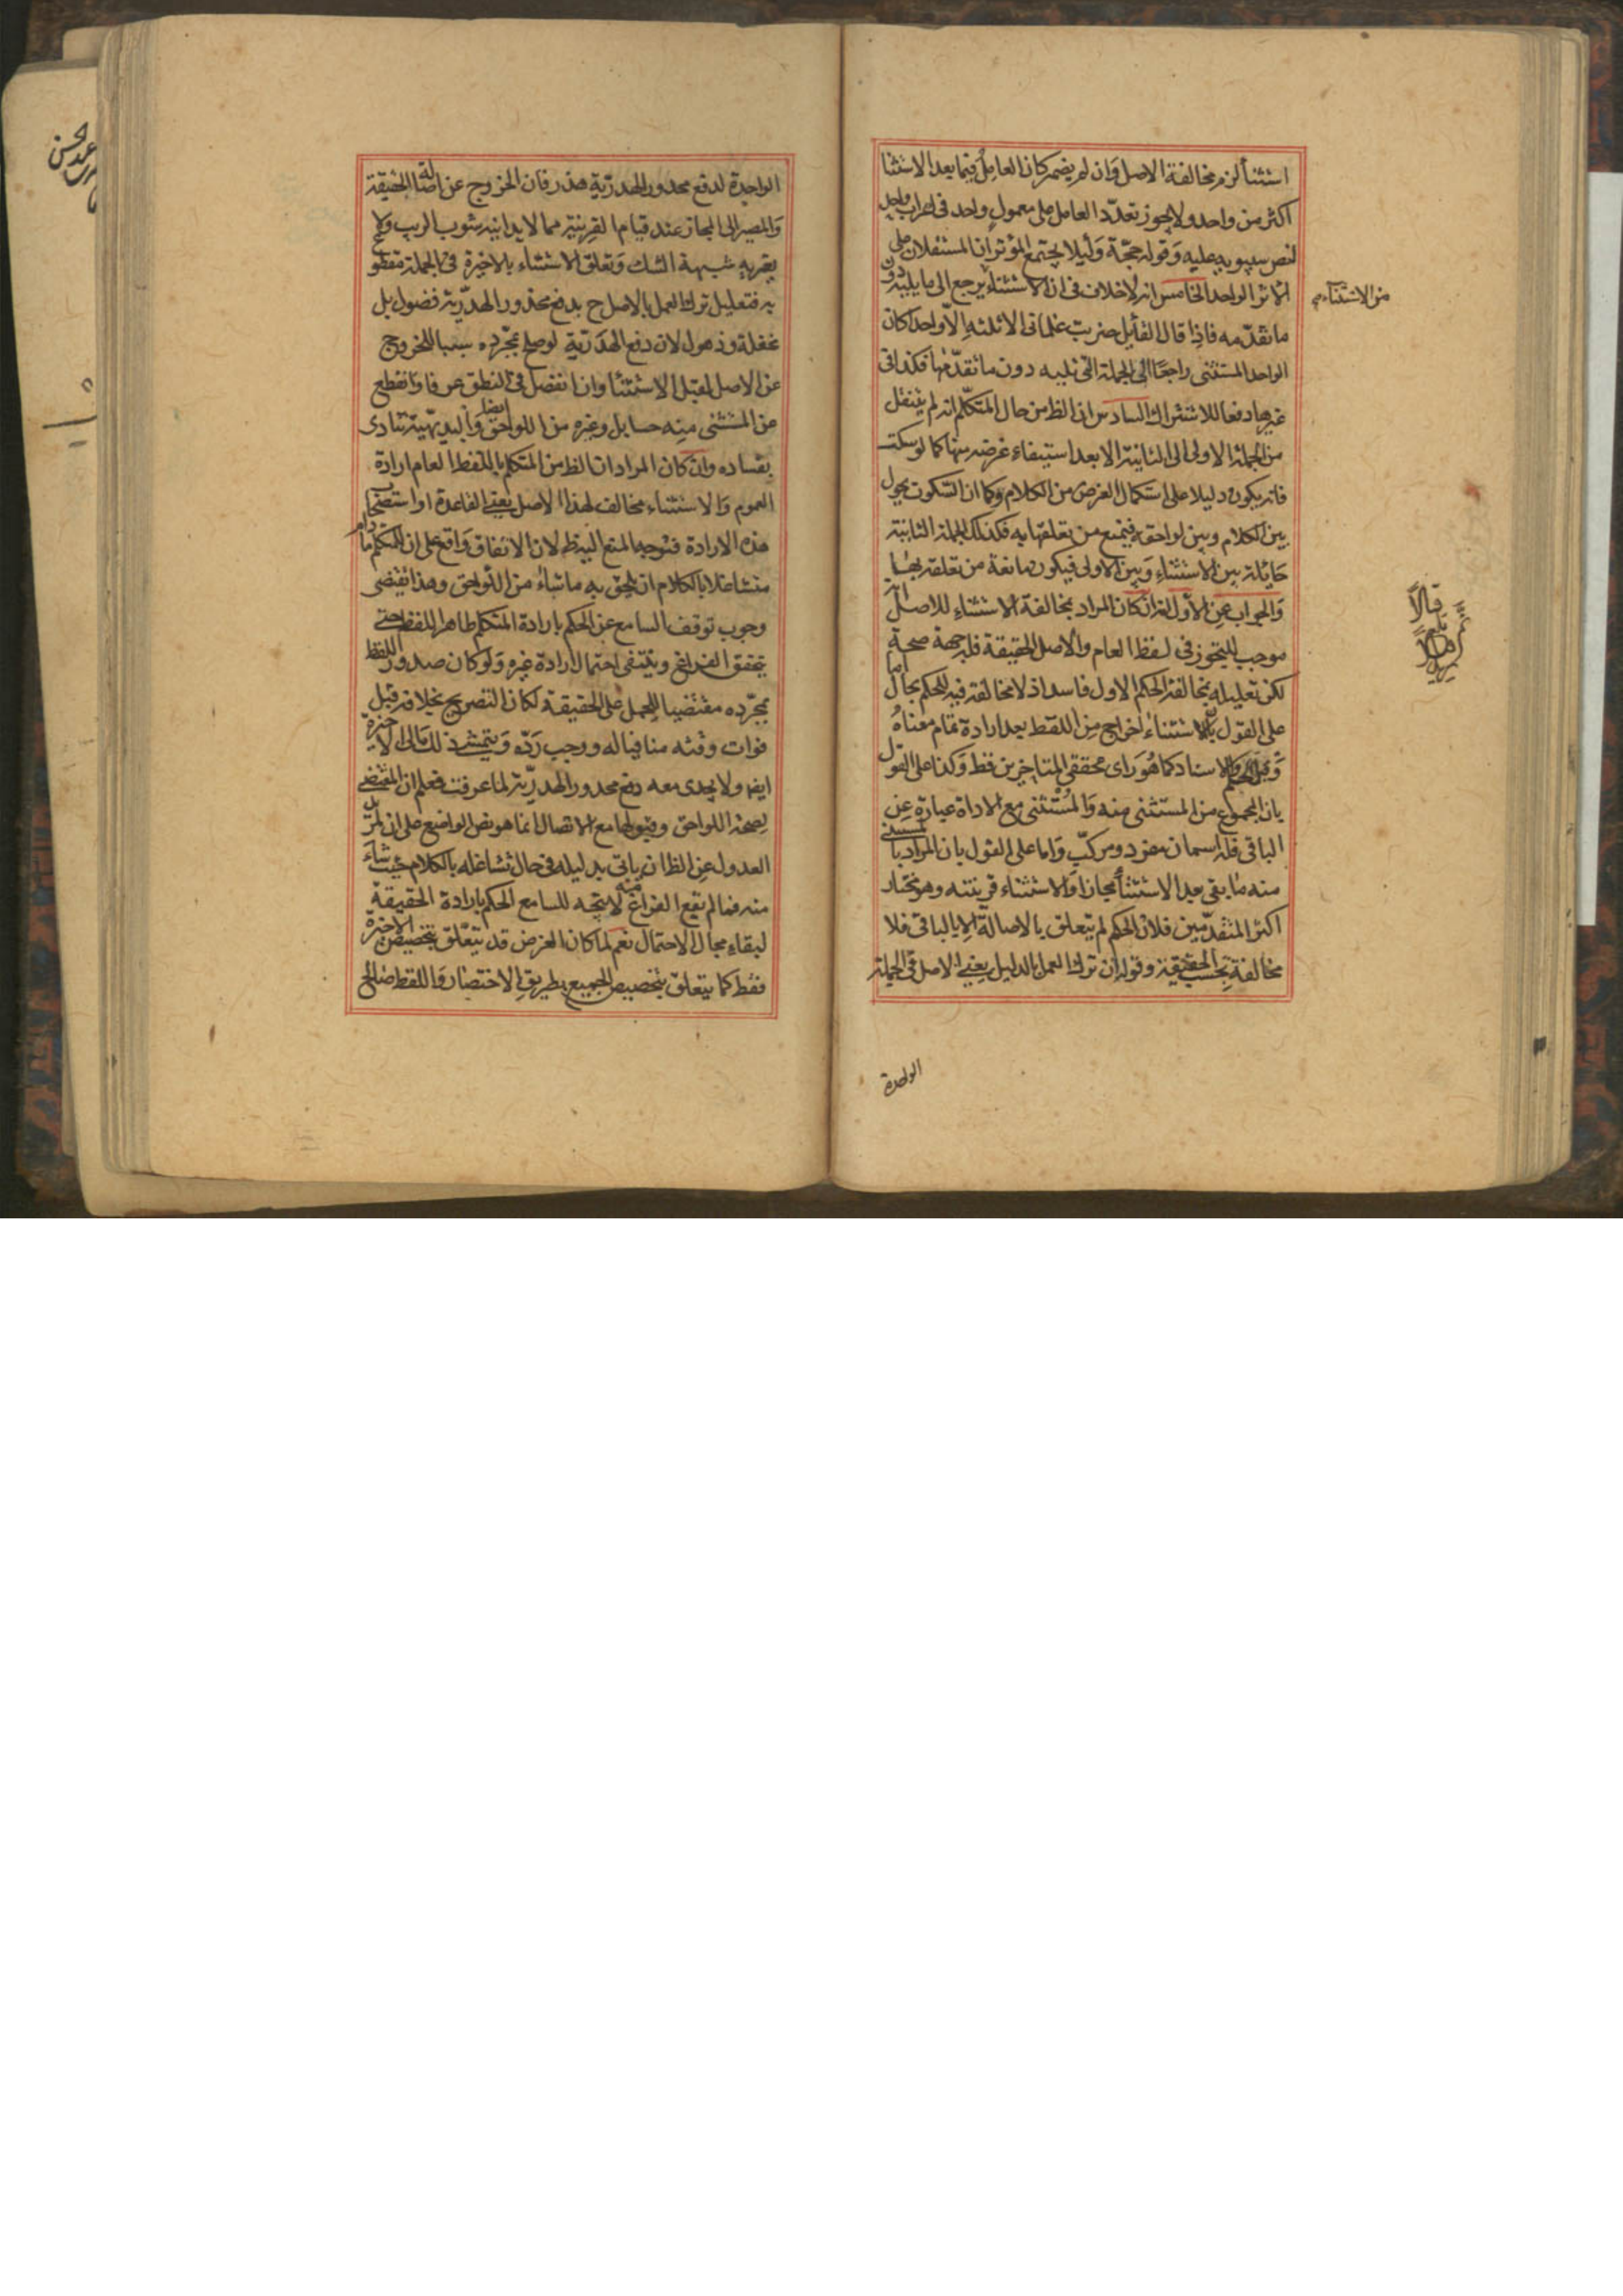 استثنأ لزم مخالفة الاصل وان لم يضمر كان العامل فيما بعد الاستثنا
اكثر من واحد ولا يجوز تعدّد العامل على معمول واحد فى اعراب واحد
لنص سيبويه عليه وقوله حجّة وليلا يجتمع المؤثران المستقلان على
الاثر الواحد الخامس انه لا خلاف فى ان الاستثناء يرجع الى ما يليه دون
من الاستثناء
ما تقدّمه فاذا قال القائل ضربت غلمانى الا ثلثه الا واحدا كان
الواحد المستثنى راجعًا الى الجملة التى تليه دون ما تقدّمها فكذا فى
غيرها دفعا للاشتراك السادس ان الظ من حال المتكلّم انه لم ينتقل
من الجملة الاولى الى الثانية الا بعد استيفاء غرضه منها كما لو سكت
فانه يكون دليلا على استكمال الغرض من الكلام وكما ان السّكوت يحول
بين الكلام وبين لواحقه فيمنع من تعلقها به فكذلك الجملة الثانية
حايلة بين الاستثناء وبين الاولى فيكون مانعة من تعلقه بها
والجواب عن الأول انه ان كان المراد بمخالفة الاستثناء للاصل انه
موجب للتجوز فى لفظ العام والاصل الحقيقة فله جهة صحة
لكن تعليله بمخالفة الحكم الاول فاسد اذ لا مخالفة فيه للحكم بحال اما
على القول بان الاستثناء اخراج من اللفظ بعد ارادة تمام معناه
وقبل الحكم والاسناد كما هو راى محققى المتاخرين فظ وكذا على القول
بان المجموع من المستثنى منه والمستثنى مع الاداة عبارة عن
الباقى فله اسمان مفرد ومركّب واما على القول بان المراد بالمستثنى
منه ما بقى بعد الاستثنأ مجازا والاستثناء قرينته وهو مختار
اكثر المتقدّمين فلان الحكم لم يتعلق بالاصالة الا بالباقى فلا
مخالفة بحسب الحقيقة وقوله ان ترك العمل بالدليل يعنى الاصل فى الجملة
الواحدة
الواحدة لدفع محذور الهدريّة هذر فان الخروج عن اصالة الحقيقة
والمصير الى المجاز عند قيام القرينة مما لا يدانيه شوب الريب ولا
يعتريه شبهة الشك وتعلق الاستثناء بالاخيرة فى الجملة مقطوع
به فتعليل ترك العمل بالاصل ح بدفع محذور الهدريّة فضول بل
غفلة وذهول لان دفع الهدريّة لو صلح بمجرّده سببا للخروج
عن الاصل لقبل الاستثنأ وان انفصل فى النطق عرفا وانقطع
عن المستثنى منه حسا بل وغيره من اللواحق ايضا والبديهيّة تنادى
بفساده وان كان المراد ان الظ من المتكلم باللفظ العام ارادة
العموم والاستثناء مخالف لهذا الاصل يعنى القاعدة او استصحاب
هذه الارادة فتوجه المنع اليه ظ لان الاتفاق واقع على ان للمتكلم ما دام
متشاغلا بالكلام ان يلحق به ما شاء من اللواحق وهذا يقتضى
وجوب توقف السامع عن الحكم بارادة المتكلم ظاهر اللفظ حتى
يتحقق الفراغ وينتفى احتمال ارادة غيره ولو كان صدور اللفظ
بمجرّده مقتضيا للحمل على الحقيقة لكان التصريح بخلافه قبل
فوات وقته منافيا له ووجب ردّه ويتمشى ذلك الى الاخيرة
ايضا ولا يجدى معه دفع محذور الهدريّة لما عرفت فعلم ان المقتضى
لصحة اللواحق وقبولها مع الاتصال انما هو نص الواضع على ان لمريد
العدول عن الظ ان ياتى بدليله فى حال تشاغله بالكلام حيث شاء
منه فما لم يقع الفراغ منه لا يتجه للسامع الحكم بارادة الحقيقة
لبقاء مجال الاحتمال نعم لما كان الغرض قد يتعلّق بتخصيص الاخيرة
فقط كما يتعلق بتخصيص الجميع بطريق الاختصار واللفظ صالح